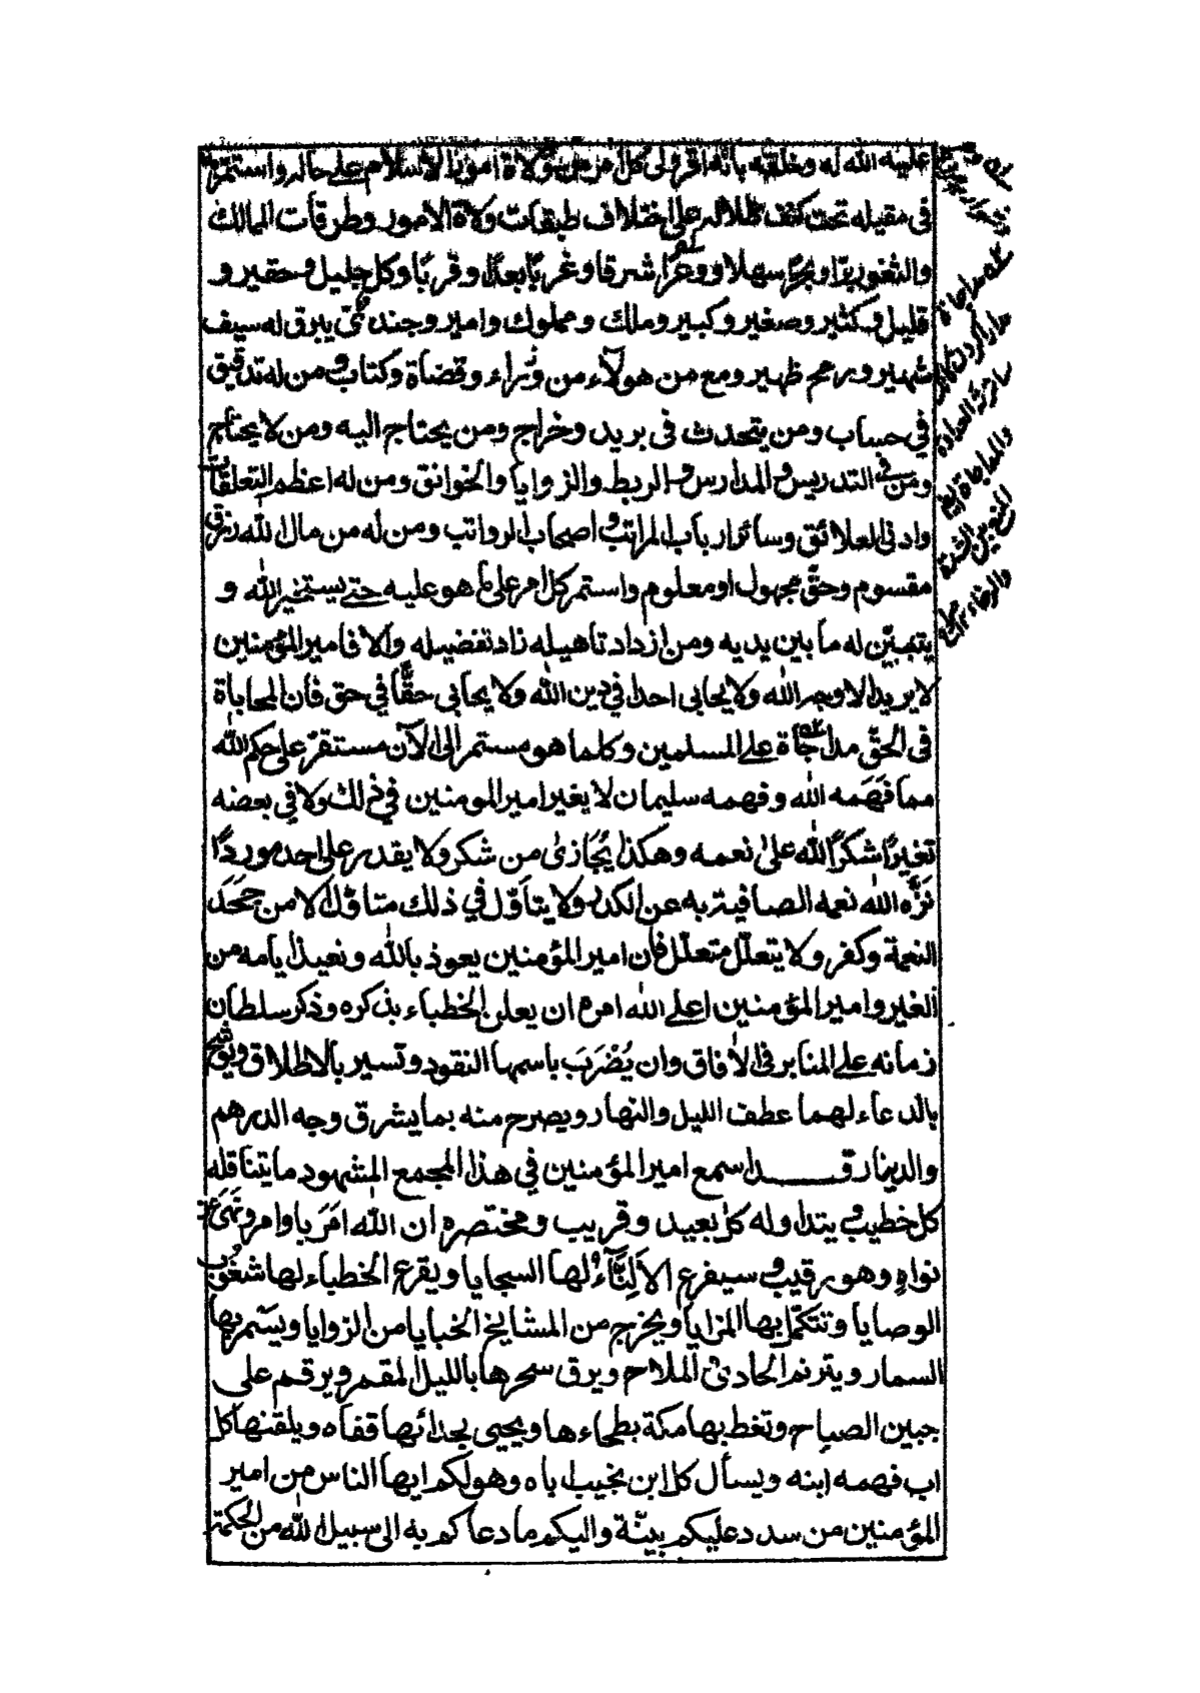 عليه الله له وخلقه بانه اقر ولى كل من ولاة امور الاسلام على حاله واستمر
فى مقيله تحت كنف ظلاله على اختلاف طبقات ولاة الامور وطرقات الممالك
والثغور برّا وبحرًا سهلا ووعرًا شرقا وغربًا بعدًا وقربًا وكل جليل وحقير و
قليل وكثير وصغير وكبير وملك ومملوك وامير وجندىّ يبرق له سيف
شهير ورمح ظهير ومع من هولاء من وزراء وقضاة وكتاب ومن له تدقيق
فى حساب ومن يتحدث فى بريد وخراج ومن يحتاج اليه ومن لا يحتاج
ومن فى التدريس والمدارس والربط والزوايا والخوانق ومن له اعظم التعلقات
وادنى العلائق وسائر ارباب المراتب واصحاب الرواتب ومن له من مال الله رزق
مقسوم وحقّ مجهول او معلوم واستمر كل امر على ما هو عليه حتى يستخير الله و
يتبيّن له ما بين يديه ومن ازداد تاهيله زاد تفضيله والا فامير المؤمنين
لا يريد الا وجه الله ولا يحابى احدا فى دين الله ولا يحابى حقًّا فى حق فان المحاباة
فى الحقّ مداجاة على المسلمين وكلما هو مستمر الى الآن مستقرّ على حكم الله
مما فَهَمه الله وفهمه سليمان لا يغير امير المومنين فى ذلك ولا فى بعضه
تغيرًا شكرًا لله على نعمه وهكذا يُجَازىٰ من شكر ولا يقدر على احد موردًا
نَزَّه الله نعمه الصافية به عن الكدر ولا يتأوّل فى ذلك متاوّل الا من جَحَدَ
النعمة وكفر ولا يتعلّل متعلّل فان امير المؤمنين يعوذ بالله ونعيذ ايامه من
الغير وامير المؤمنين اعلى الله امره ان يعلن الخطباء بذكره وذكر سلطان
زمانه على المنابر فى الآفاق وان يُضْرَبَ باسمها النقود وتسير بالاطلاق ويوشح
بالدعاء لهما عطف الليل والنهار ويصرح منه بما يشرق وجه الدرهم
والدينار قد اسمع امير المؤمنين فى هذا المجمع المشهود ما يتناقله
كل خطيب ويتداوله كل بعيد وقريب ومختصره ان الله امَرَ باوامر ونَهَىَ عن
نواهٍ وهو رقيب وسيفرع الاَلِبَّآءُ لها السجايا ويقرع الخطباء لها شعُوب
الوصايا وتتكمّل بها المزايا ويخرج من المشايخ الخبايا من الزوايا ويسمر بها
السمار ويترنم الحادى الملاح ويرق سحرها بالليل المقمر ويرقم على
جبين الصباح وتغط بها مكة بطحاءها ويحيى بحدائها قفاه ويلقنها كل
اب فهمه ابنه ويسأل كل ابن نجيب اباه وهو لكم ايها الناس من امير
المؤمنين من سدد عليكم بينّة واليكم ما دعاكم به الى سبيل الله من الحكمة
مداجاة
مداراكردن
ساترة العداوة
والمداجاة
المنع بين الشدة
والرخاء